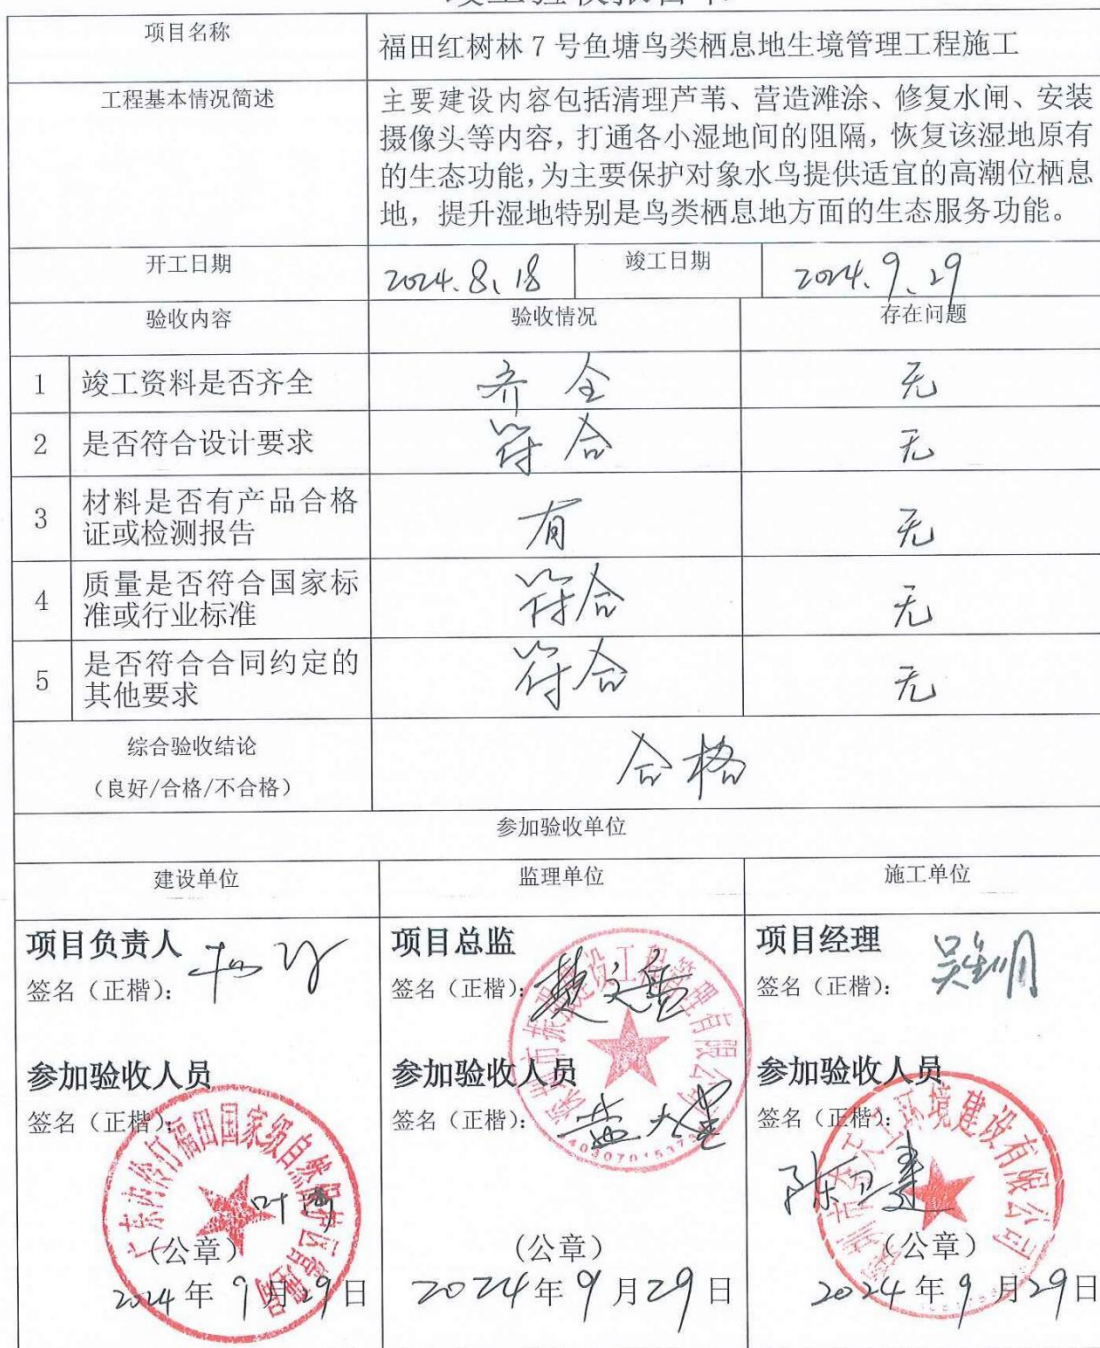 项目名称
福田红树林7号鱼塘鸟类栖息地生境管理工程施工
工程基本情况简述
主要建设内容包括清理芦苇、营造滩涂、修复水闸、安装
摄像头等内容，打通各小湿地间的阻隔，恢复该湿地原有
的生态功能，为主要保护对象水鸟提供适宜的高潮位栖息
地，提升湿地特别是鸟类栖息地方面的生态服务功能。
开工日期
2024.8.18
竣工日期
2024.9.29
验收内容
验收情况
存在问题
1 竣工资料是否齐全
齐全
无
2 是否符合设计要求
符合
无
3 材料是否有产品合格
证或检测报告
有
无
4 质量是否符合国家标
准或行业标准
符合
无
5 是否符合合同约定的
其他要求
符合
无
综合验收结论
（良好/合格/不合格）
合格
参加验收单位
建设单位
监理单位
施工单位
项目负责人
签名（正楷）：
参加验收人员
签名（正楷）：
（公章）
2024年9月29日
项目总监
签名（正楷）：
参加验收人员
签名（正楷）：
（公章）
2024年9月29日
项目经理
签名（正楷）：
参加验收人员
签名（正楷）：
陈卫建
（公章）
2024年9月29日